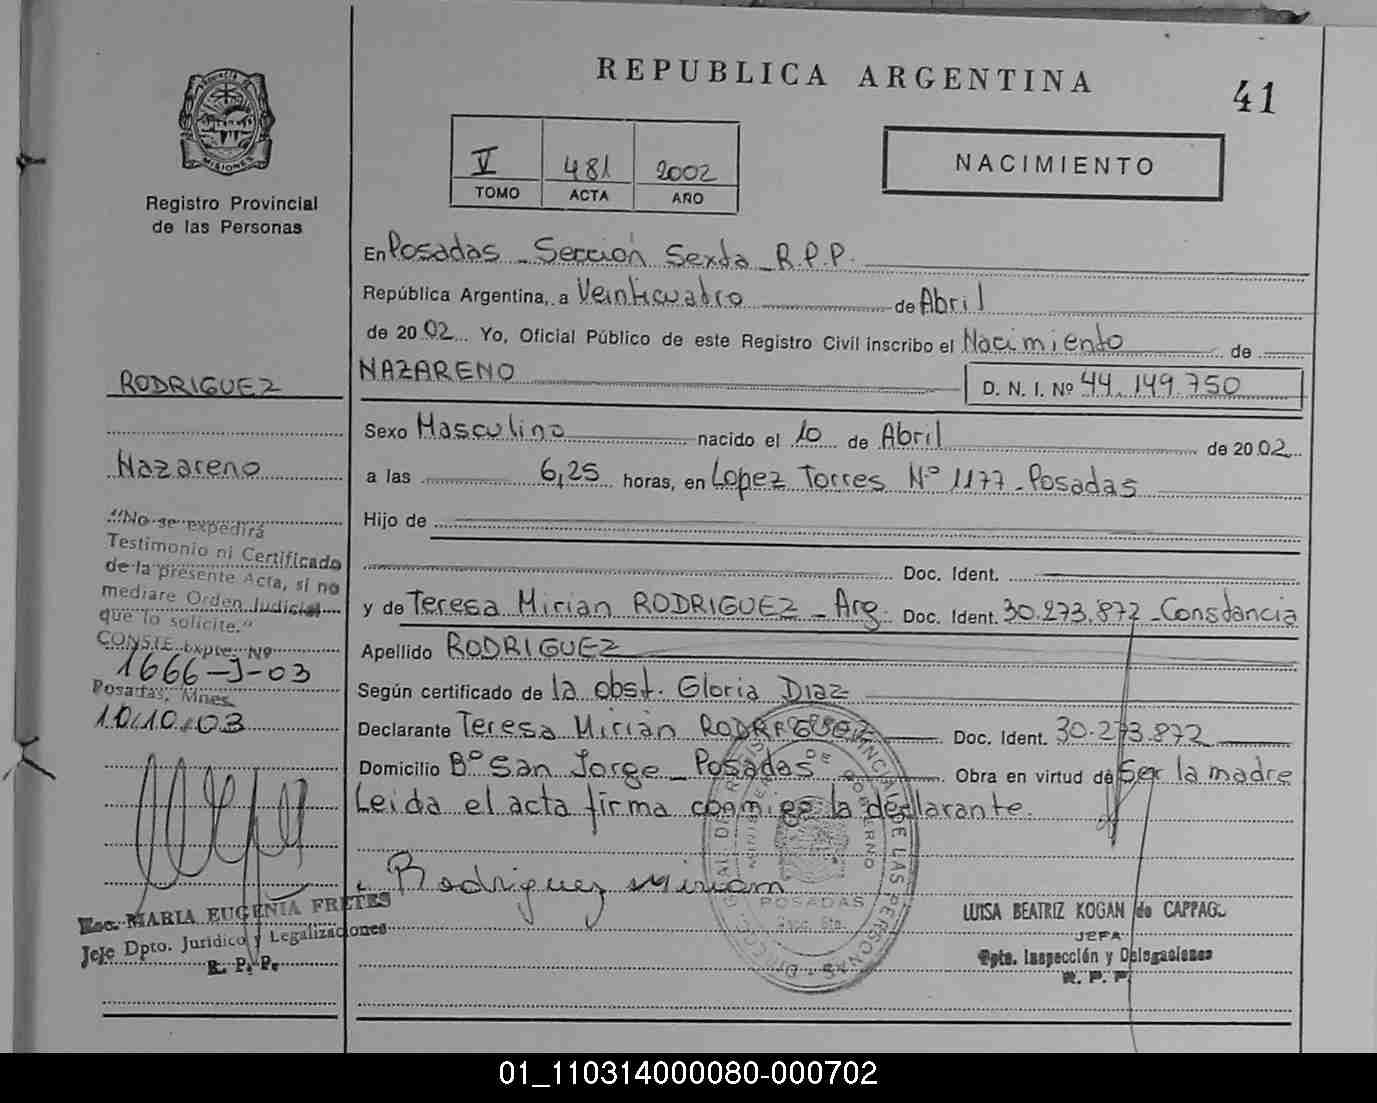 REPUBLICA ARGENTINA
41
PROVINCIA DE
MISIONES
Registro Provincial
de las Personas
V 481 2002
TOMO ACTA AÑO
NACIMIENTO
En Posadas - Sección Sexta - R.P.P.
República Argentina, a Veinticuatro de Abril
de 2002 Yo, Oficial Público de este Registro Civil inscribo el Nacimiento de
NAZARENO D. N. I. Nº 44.149.750
Sexo Masculino nacido el 10 de Abril de 2002
a las 6,25 horas, en Lopez Torres Nº 1177 - Posadas
Hijo de
Doc. Ident.
y de Teresa Mirian RODRIGUEZ - Arg. Doc. Ident. 30.273.872 - Constancia
Apellido RODRIGUEZ
Según certificado de la obst. Gloria Diaz
Declarante Teresa Mirian RODRIGUEZ Doc. Ident. 30.273.872
Domicilio Bº San Jorge - Posadas Obra en virtud de Ser la madre
Leida el acta firma conmigo la declarante.
Rodriguez Miriam
POSADAS
LUISA BEATRIZ KOGAN de CAPPAG
JEFA
Dpto. Inspección y Delegaciones
R. P. P.
RODRIGUEZ
Nazareno
"No se expedirá
Testimonio ni Certificado
de la presente Acta, si no
mediare Orden Judicial
que lo solicite."
CONSTE Expte. Nº
1666-J-03
Posadas, Mnes.
10/10/03
Esc. MARIA EUGENIA FRETES
Jefe Dpto. Jurídico y Legalizaciones
R. P. P.
01_110314000080-000702